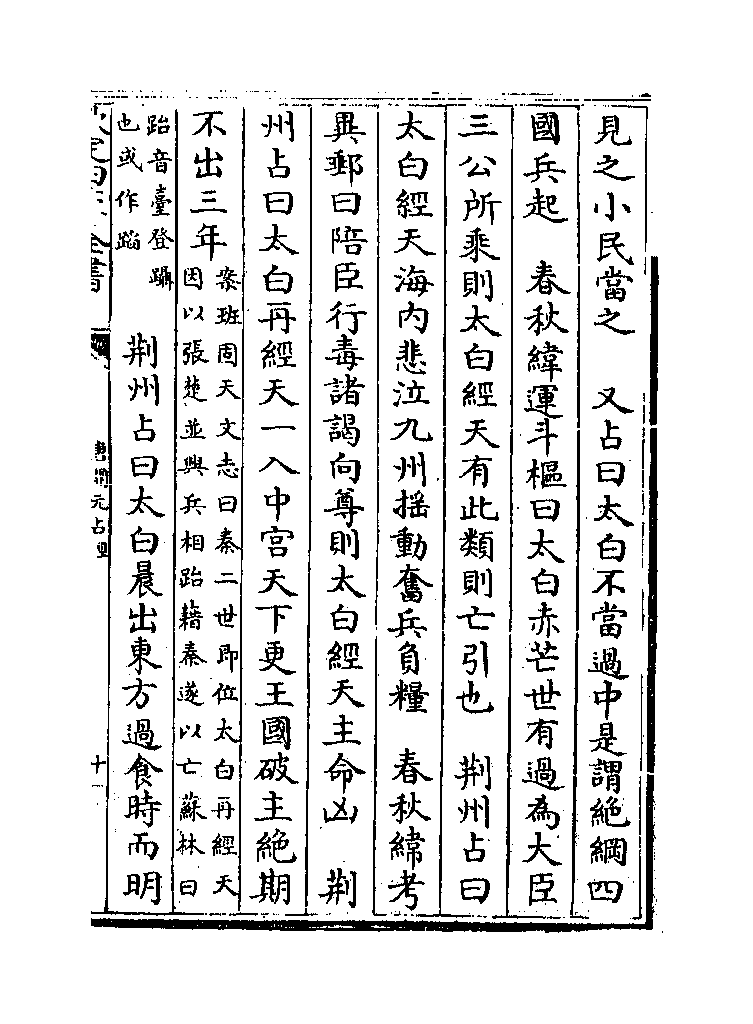 見之小民當之　又占曰太白不當過中是謂絶綱四
國兵起　春秋緯運斗樞曰太白赤芒世有過為大臣
三公所乘則太白經天有此類則亡引也　荆州占曰
太白經天海内悲泣九州揺動奮兵負糧　春秋緯考
異郵曰陪臣行毒諸謁向尊則太白經天主命凶　荆
州占曰太白再經天一入中宫天下更王國破主絶期
不出三年
案班固天文志曰秦二世即位太白再經天
因以張楚並興兵相跆藉秦遂以亡蘇林曰
跆音臺登躡
也或作蹈
荆州占曰太白晨出東方過食時而明
全書
唐開元占經
十一